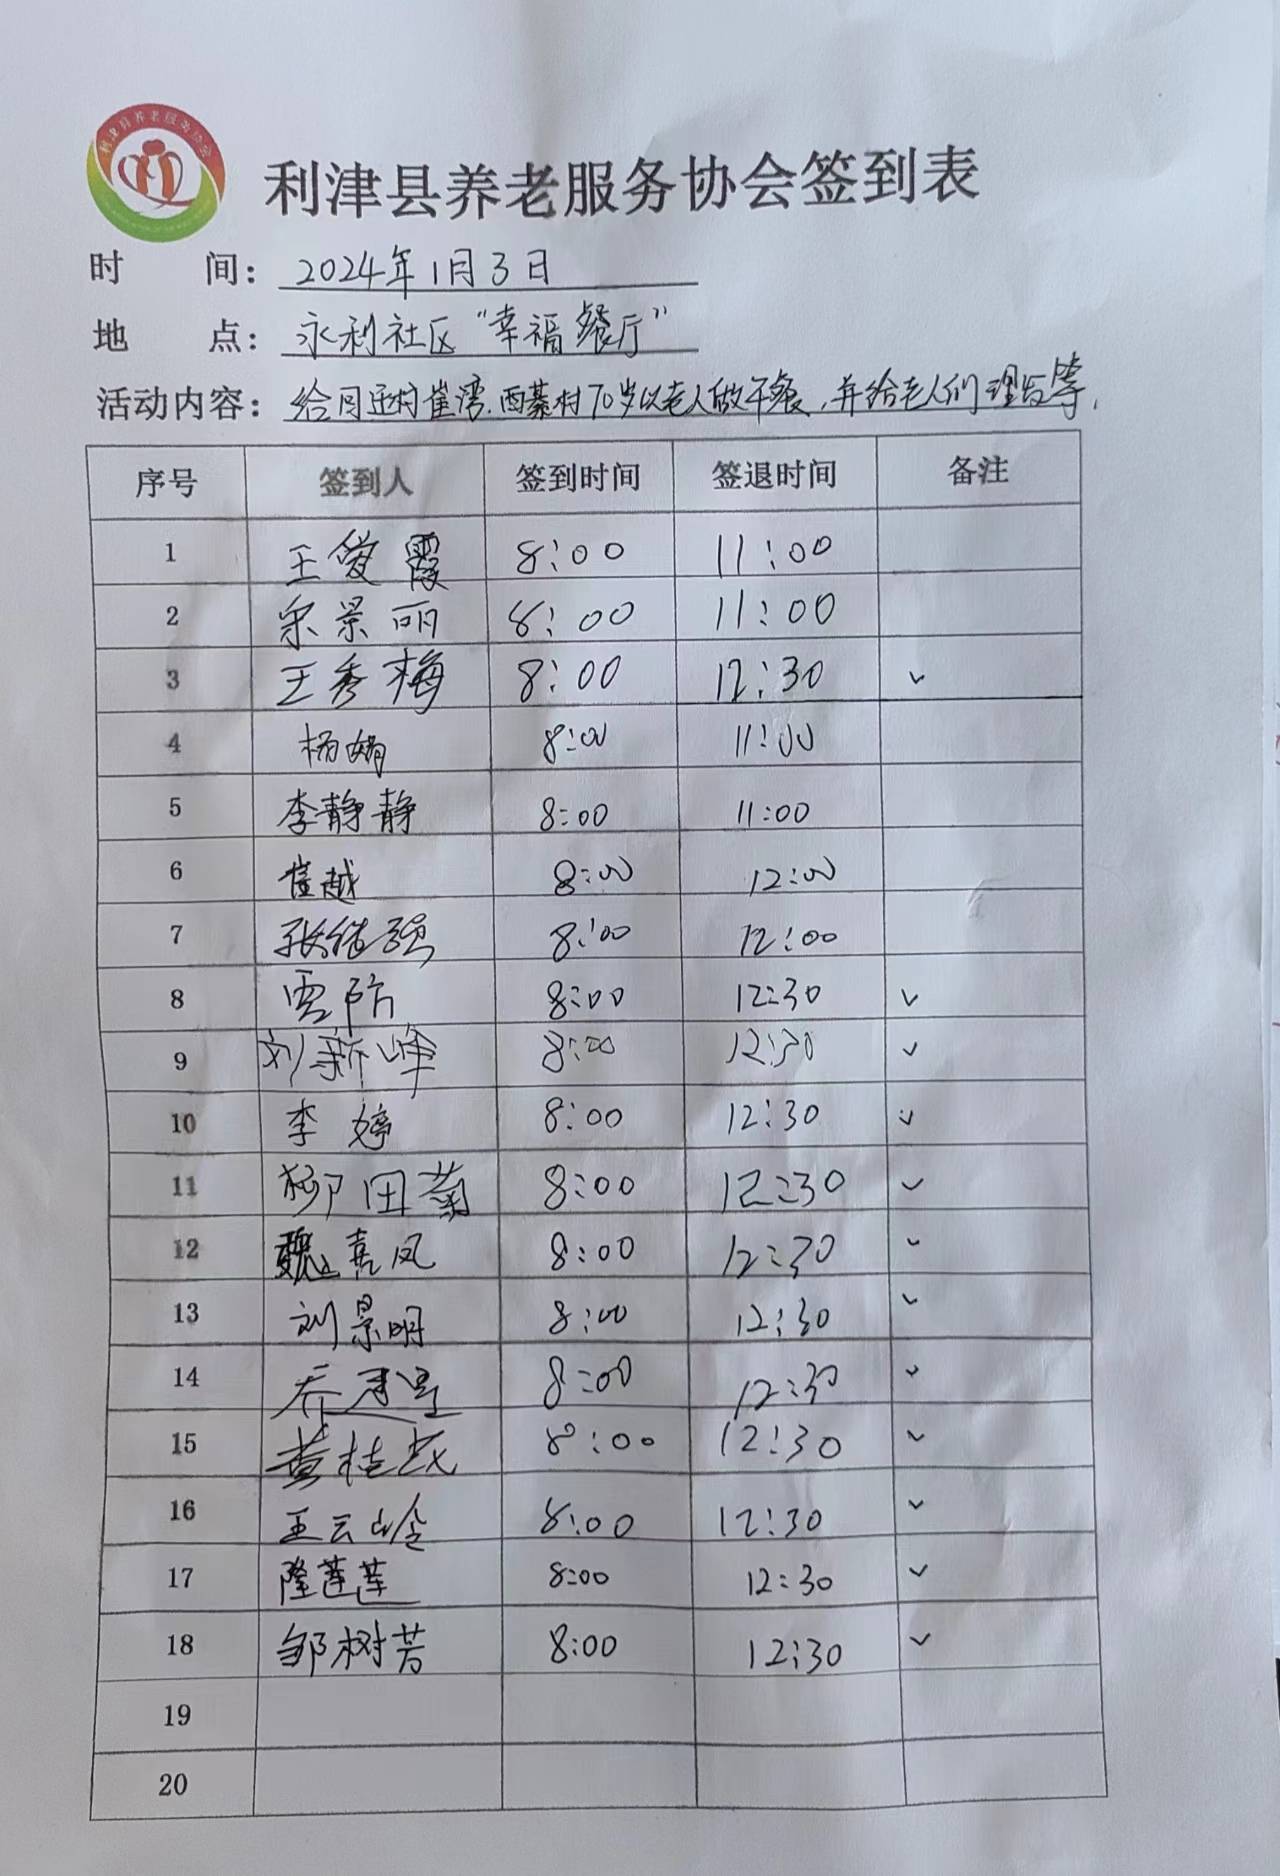 利津县养老服务协会
利津县养老服务协会签到表
时 间：2024年1月3日
地 点：永利社区“幸福餐厅”
活动内容：给闫 村崔湾、西綦村70岁以老人做午餐，并给老人们理发等，
序号 签到人 签到时间 签退时间 备注
1 王爱霞 8:00 11:00
2 宋景丽 8:00 11:00
3 王秀梅 8:00 12:30 ✓
4 杨娟 8:00 11:00
5 李静静 8:00 11:00
6 崔越 8:00 12:00
7 张继强 8:00 12:00
8 8:00 12:30 ✓
9 刘新峰 8:00 12:30 ✓
10 李婷 8:00 12:30 ✓
11 柳田菊 8:00 12:30 ✓
12 魏嘉凤 8:00 12:30 ✓
13 刘景明 8:00 12:30 ✓
14 乔 8:00 12:30 ✓
15 黄桂 8:00 12:30 ✓
16 王云岭 8:00 12:30 ✓
17 隆莲莲 8:00 12:30 ✓
18 邹树芳 8:00 12:30 ✓
19
20